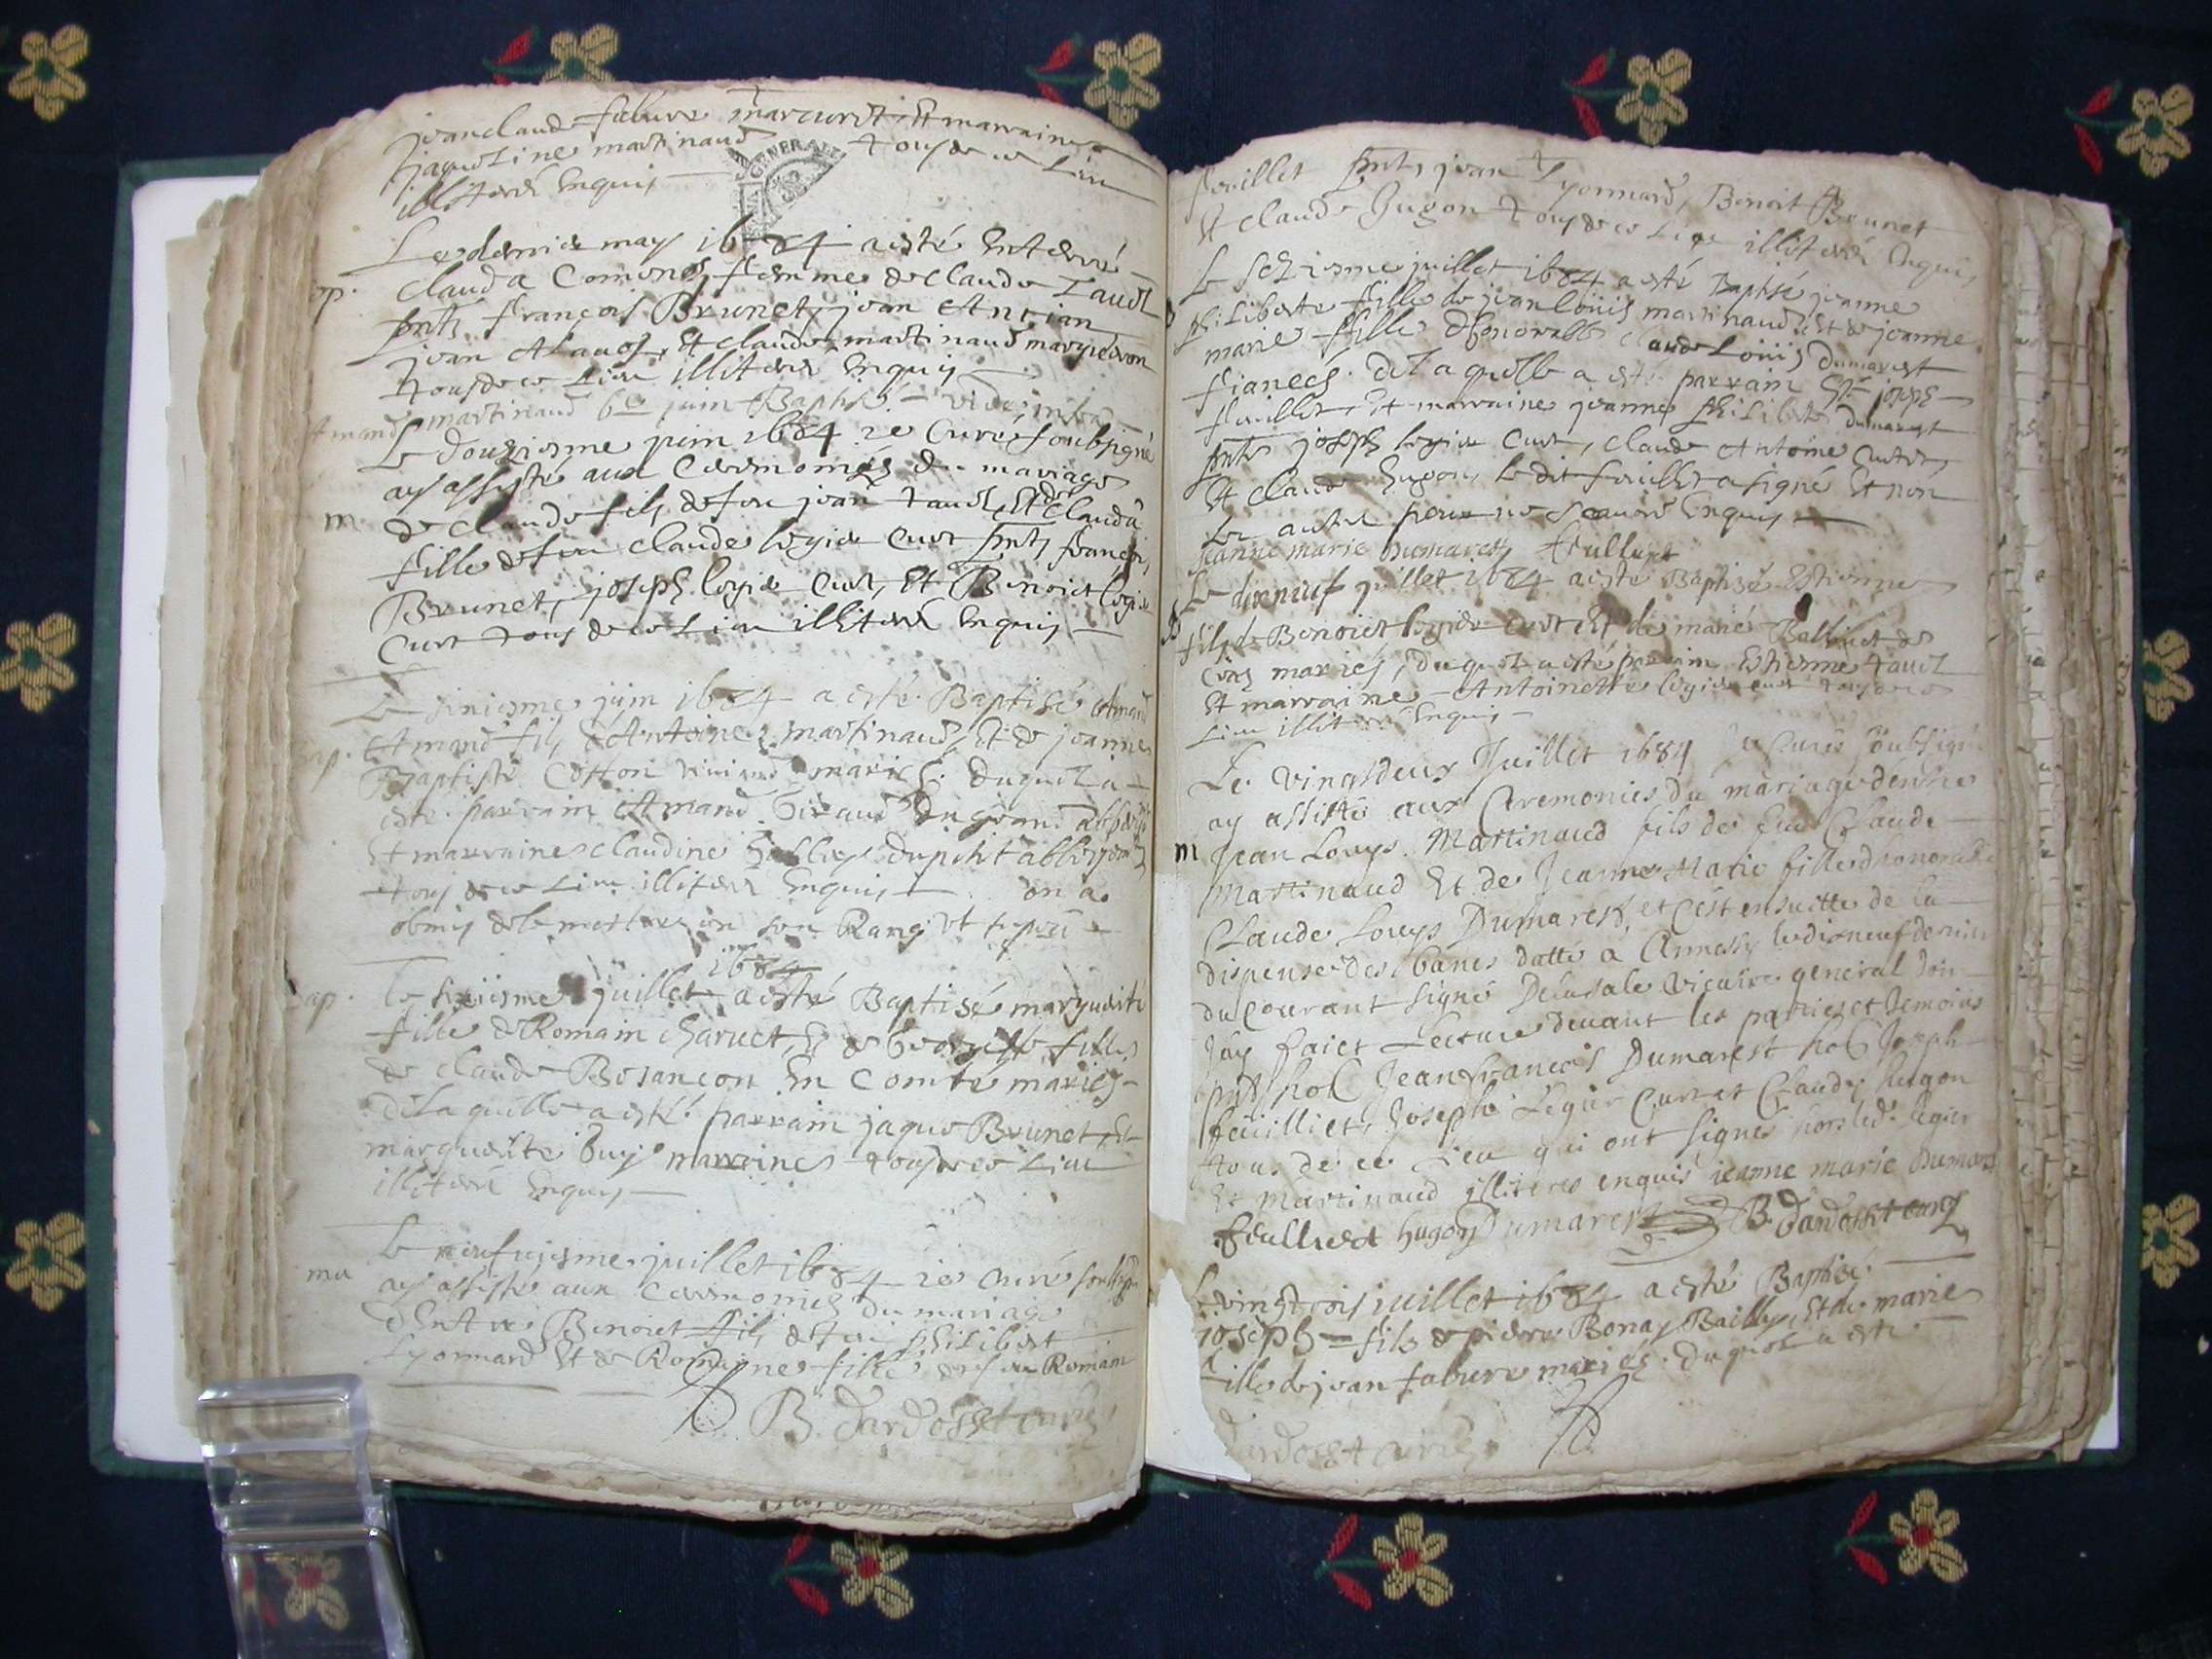 jean claude fabure marcurt Et marraine
jaqueline martinaud tous de ce Lieu
illiteres Enquis
GENERALI
Le dernie may 1684 a esté Enterré
op. Clauda femme de Claude Tauel
pnts françois Brunet, jean Ancian
jean Et claude martinaud
tous de ce Lieu illiteres Enquis
martinaud 6e juin Baptisé vide infra
Le douziesme juin 1684 ie Curé soubsigné
ay assisté aux Ceremonies du mariage
m de Claude fils de feu jean tauel, Et de Clauda
fille de feu Claude legie Curt pnts françois
Brunet, joseph legie Curt, Et Benoict legie
Curt tous de ce Lieu illiteres Enquis
Le siziesme juin 1684 a esté Baptisé Amand
Bap. Amand fils d'Antoine martinaud Et de jeanne
Baptiste Cotton mariés. duquel a
esté parrain Amand Giraud du grand abbergem
Et marraine claudine du petit abbergem
tous de ce Lieu illiteres Enquis on a
obmis de le mettre en son Rang ut supra
1684
Bap. Le juillet a esté Baptisé marguerite
fille de Romain Charuet, Et de Georgette fille
de Claude Besançon En Comté mariés
de Laquelle a esté parrain jaque Brunet Et
marguerite Buy marraine tous de ce Lieu
illiteres Enquis
ma Le neufuiesme juillet 1684 ie curé soubsigné
ay assisté aux Ceremonies du mariage
d'Entre Benoict fils de feu philibert
Lyonnard Et de Romaine fille de feu Romain
B. Dardosset curé
feuillet pnts jean Lyonnard, Benoit Brunet
Et Claude Hugon tous de ce Lieu illiteres Enquis
Le seziesme juillet 1684 a esté Baptisé jeanne
philiberte fille de jean louis martinaud Et de jeanne
marie fille d'honorable claude Louis Dumarest
fiancés. de Laquelle a esté parrain Sr joseph
feuillet, Et marraine jeanne philiberte Dumarest
pnts joseph legie Curt, Claude Antoine Curtet,
Et Claude hugon, Ledit feuillet a signé Et non
les autres pour ne scauoir Enquis
jeanne marie Dumarest feulliet
Le dixneuf juillet 1684 a esté Baptisé Estienne
fils de Benoict legie Curt Et de marie
mariés, duquel a esté parrain Estienne tauel
Et marraine Antoinette legie curt tous de ce
Lieu illiteres Enquis
Le vingtdeux Juillet 1684 Je Curé soubsigné
ay assisté aux Ceremonies du mariage d'entre
m Jean Louys Martinaud fils de feu Claude
Martinaud Et de Jeanne Marie fille d'honorable
Claude Louys Dumarest, et c'est ensuitte de la
dispense des bancs datté a Annessy le dixneuf dernier
du Courant signé Delasale vicaire general dont
J'ay faict Lecture deuant les parties et temoins
pnts hoC Jean François Dumarest hoC Joseph
feuilliet, Joseph Legier Curt et Claude hugon
tous de ce Lieu qui ont signés hors led. legier
Et Martinaud illiteres enquis jeanne marie Dumarest
feulliet hugon Dumarest B. Dardosset curé
Le vingtrois juillet 1684 a esté Baptisé
joseph fils de pierre Bonay Bailly, Et de marie
fille de jean fabure mariés. duquel a esté
Dardosset curé